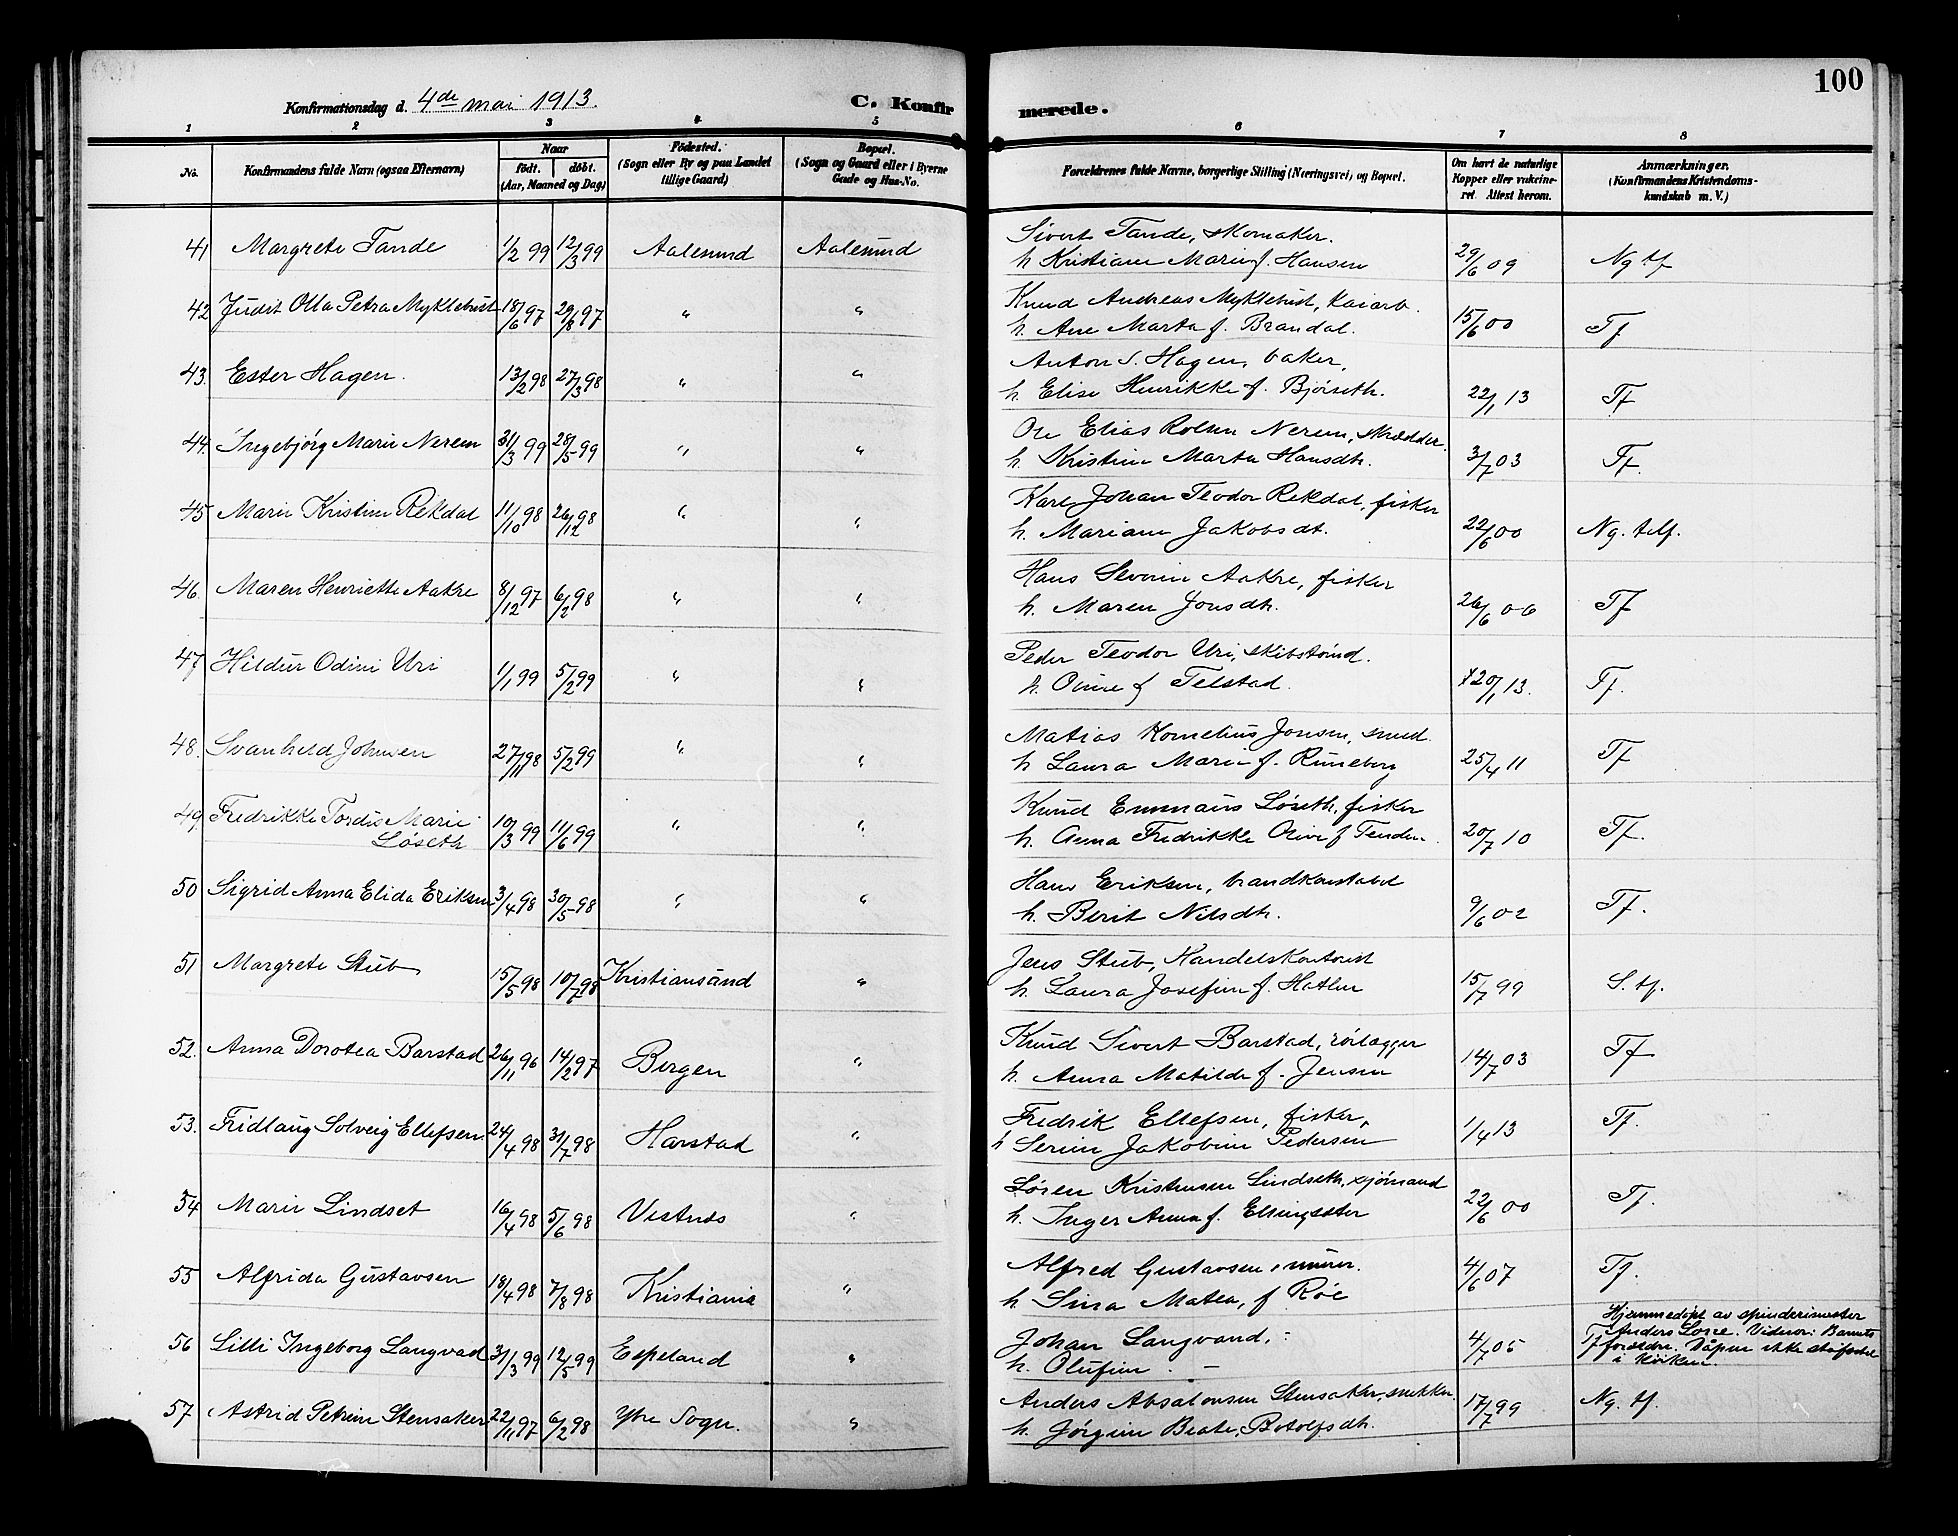 100
Konfirmationsdag d. 4de mai 1913.
C. Konfirmerede.
1 2 3 4 5 6 7 8
No.
Konfirmandens fulde Navn (ogsaa Efternavn)
Naar
født. døbt.
(Aar, Maaned og Dag)
Födested.
(Sogn eller By og paa Landet
tillige Gaard)
Bopæl.
(Sogn og Gaard eller i Byerne
Gade og Hus-No.
Forældrenes fulde Navne, borgerlige Stilling (Næringsvei) og Bopæl.
Om havt de naturlige
Kopper eller vakcine-
ret Attest herom.
Anmærkninger.
(Konfirmandens Kristendoms-
kundskab m. V.)
41 Margrete Tande 1/2 99 12/3 99 Aalesund Aalesund Sivert Tande, skomaker. 29/6 09 Ng. tf
h Kristiane Marie f. Hansen
42 Judit Olla Petra Myklebust 18/6 97 29/8 97 " " Knud Andreas Myklebust, kaiarb. 15/6 00 Tf
h. Ane Marta f. Brandal.
43. Ester Hagen. 13/2 98 27/3 98 " " Anton S. Hagen, baker, 22/1 13 Tf
h. Elise Henrikke f. Bjørseth.
44. Ingebjørg Marie Nerem 31/3 99 28/5 99 " " Ole Elias Rolsen Nerem, skrædder. 3/7 03 Tf.
h. Kristine Marta Hansdh.
45 Marie Kristine Rekdal 11/10 98 26/12 98 " " Karl Johan Teodor Rekdal, fisker 22/6 00 Ng. telf.
h. Mariane Jakobsdt.
46. Maren Henriette Aakre 8/12 97 6/2 98 " " Hans Severin Aakre, fisker 26/6 06 Tf
h. Maren Jonsdh.
47 Hildur Odine Uri 1/1 99 5/2 99 " " Peder Teodor Uri, skibstømd. 20/1 13. Tf.
h. Oline f Telstad.
48. Svanhild Johnsen 27/11 98 5/2 99 " " Matias Kornelius Jonsen, smed. 25/4 11 Tf
h Laura Marie f. Runeberg
49. Fredrikke Tordis Marie 10/3 99 11/6 99 " " Knud Emmaus Løseth, fisker 20/7 10 Tf.
Løseth h. Anna Fredrikke Olive f Tenden.
50 Sigrid Anna Elida Eriksen 3/4 98 30/5 98 " " Hans Eriksen, brandkonstabel 9/6 02 Tf.
h. Berit Nilsdh.
51 Margrete Stub 15/5 98 10/7 98 Kristiansund " Jens Stub, Handelskontorist 15/7 99 S. tf.
h. Laura Josefine f. Hatlen
52. Anna Dorotea Barstad 26/11 96 14/2 97 Bergen " Knud Sivert Barstad, rørlægger 14/7 03 Tf
h. Anna Matilde f. Jensen
53. Fridlaug Solveig Ellefsen. 24/4 98 31/7 98 Harstad " Fredrik Ellefsen, fisker, 1/4 13 Tf.
h Serine Jakobine Pedersen
54 Marie Lindset 16/4 98 5/6 98 Vestnes " Søren Kristensen Lindseth, sjømand 22/6 00 Tf.
h. Inger Anna f. Ellingsæter
55 Alfrida Gustavsen 18/4 98 7/8 98 Kristiania " Alfred Gustavsen, murer. 4/6 07 Tf.
h Sina Matea, f Røe
56 Lilli Ingeborg Langvad 31/3 99 12/5 99 Espeland " Johan Langvand. 4/7 05 Tf Hjemmedøpt av spinderimester
Anders Lone. Vidner: Barnets
forældre. Dåpen ikke stadfæstet
i kirken.
h. Olufine
57 Astrid Petrine Stensaker 22/11 97 6/2 98 Ytre Sogn. " Anders Absalonsen Stensaker, snekker. 17/7 99 Ng. tf.
h. Jørgine Beate, Botolfsdh.